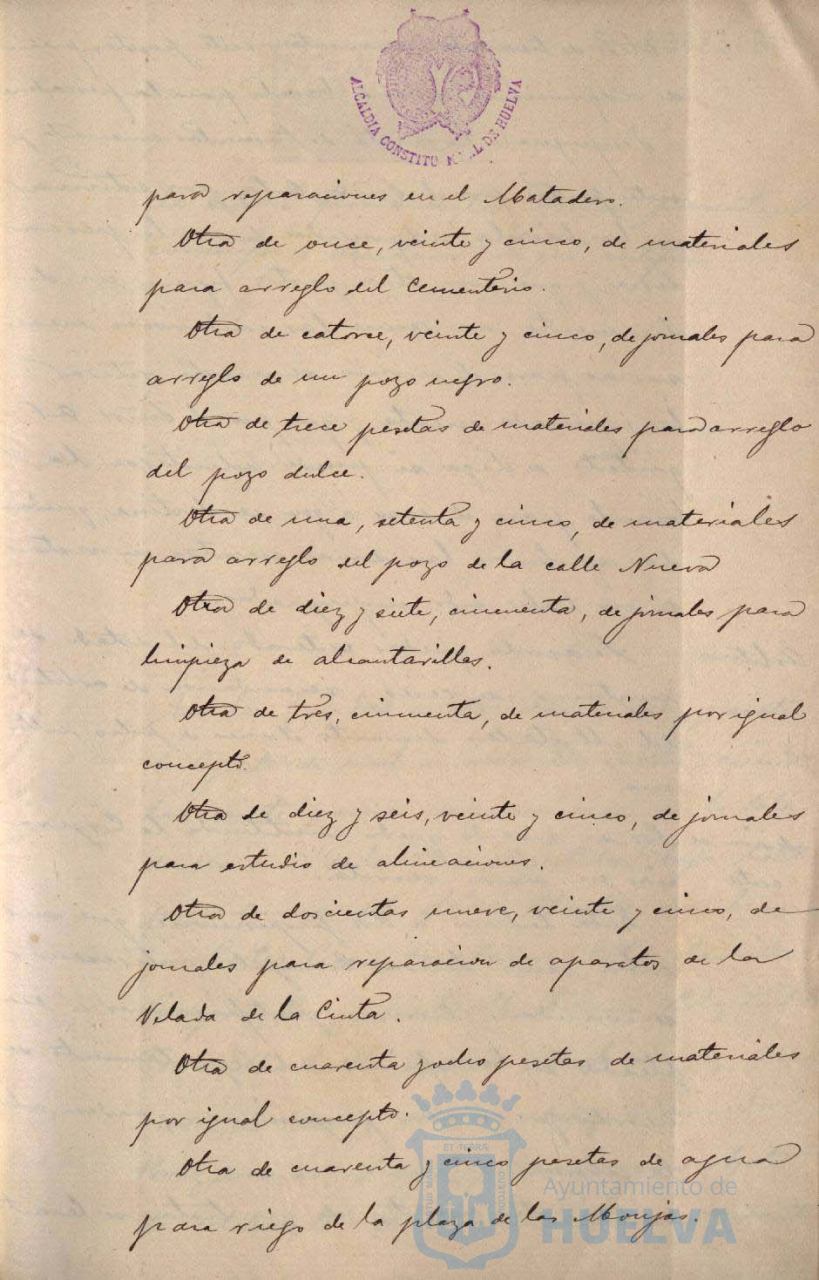 ALCALDIA CONSTITU N L DE HUELVA
para reparaciones en el Matadero.
Otra de once, veinte y cinco, de materiales
para arreglo del Cementerio.
Otra de catorce, veinte y cinco, de jornales para
arreglo de un pozo negro.
Otra de trece pesetas de materiales para arreglo
del pozo dulce.
Otra de una, setenta y cinco, de materiales
para arreglo del pozo de la calle Nueva
Otra de diez y siete, cincuenta, de jornales para
limpieza de alcantarillas.
Otra de tres, cincuenta, de materiales por igual
concepto.
Otra de diez y seis, veinte y cinco, de jornales
para estudio de alineaciones.
Otra de doscientas nueve, veinte y cinco, de
jornales para reparacion de aparatos de la
Velada de la Cinta.
Otra de cuarenta y ocho pesetas de materiales
por igual concepto.
Otra de cuarenta y cinco pesetas de agua
para riego de la plaza de las Monjas.
Ayuntamiento de
HUELVA